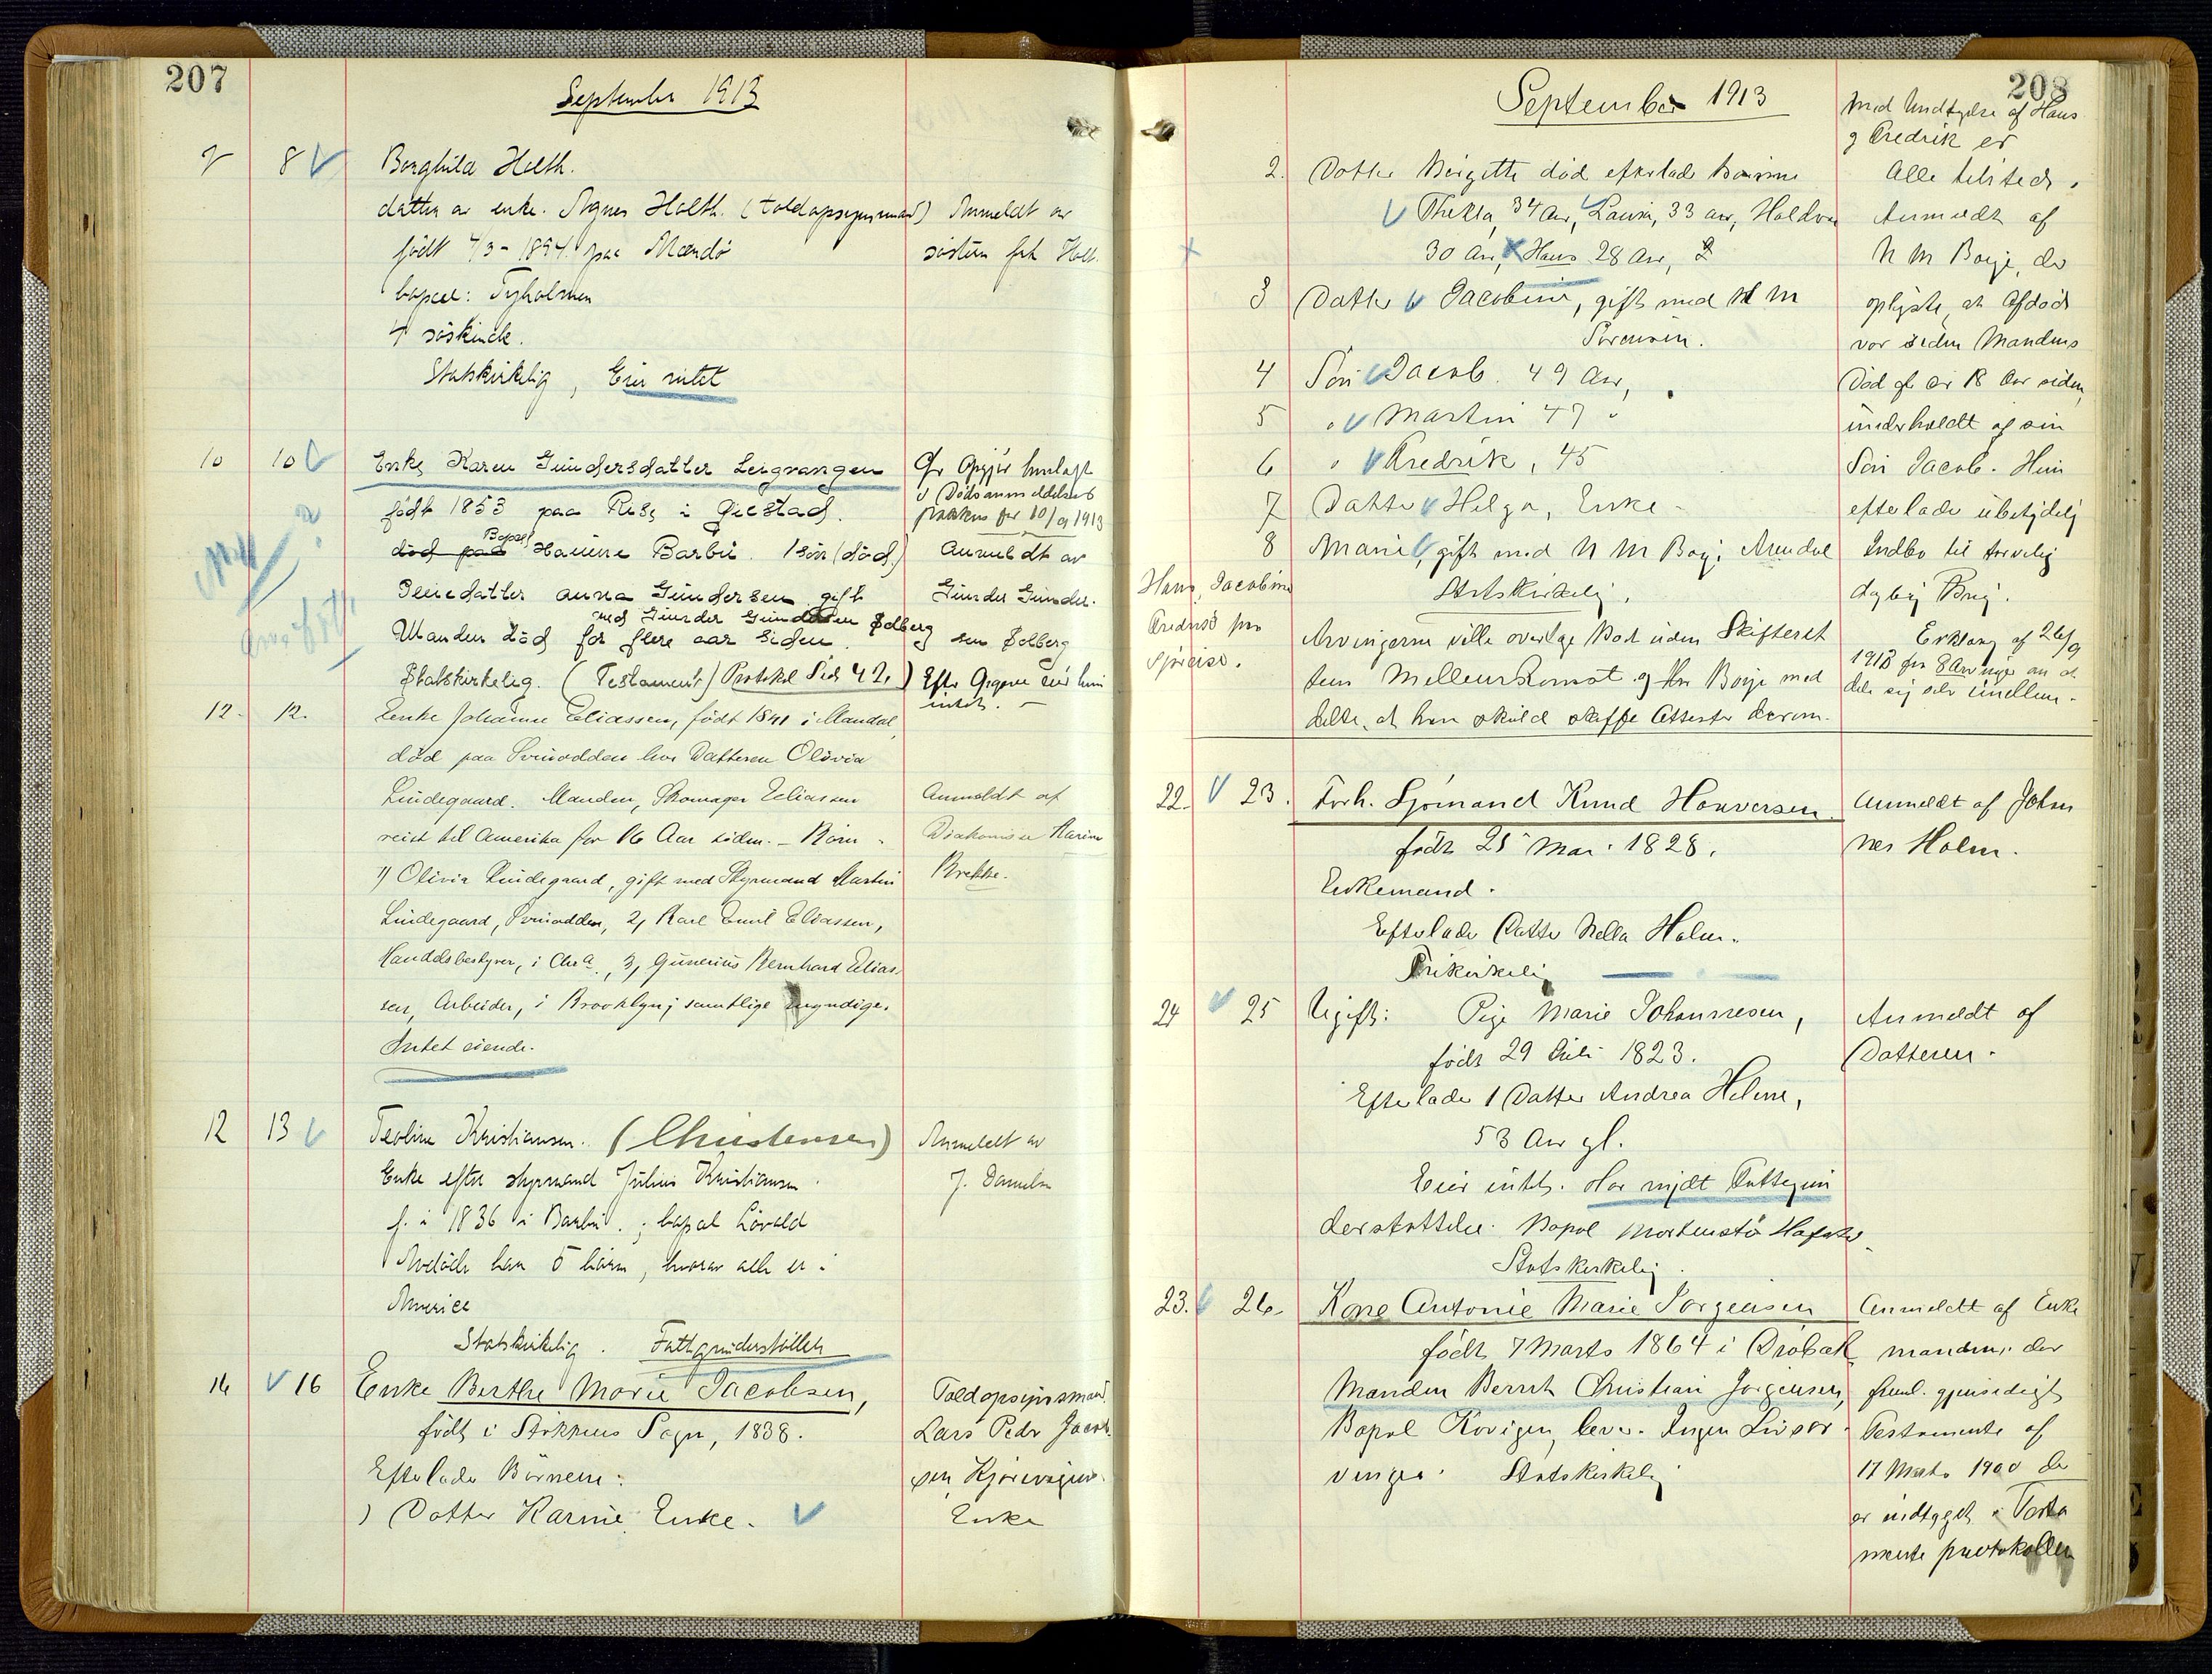 207
September 1913
7 8 Borghild Holth.
datter av enke Agnes Holth. (toldopsynsmand) Anmeldt av
født 4/3 - 1894 paa Mandø søsteren frk Holt.
bopæl: Tyholmen
4 søskinde.
Statskirkelig, Eier intet
10 10 Enke Karen Gundersdatter Lergvangen
født 1853 paa Ress i Gjestad.
død paa Bopæl Hauene Barbu. 1 søn (død.)
Pleiedatter Anna Gundersen gift
med Gunder Gundersen Solberg
Manden død for flere aar siden.
Statskirkelig. (Testament) Protokol Side 42.)
Opgjør henlagt
i Dødsanmeldelses
pakken for 10/9 1913
Anmeldt av
Gunder Gunder-
sen Solberg
Efter Opgave eier hun
intet. -
12. 12. Enke Johanne Eliassen, født 1841 i Mandal,
død paa Svinodden hos Datteren Olivia
Lindegaard. Manden, Skomager Eliassen
reist til Amerika for 16 Aar siden. - Børn -
1) Olivia Lindegaard, gift med Styrmand Martin
Lindegaard, Svinodden, 2, Karl Emil Eliassen,
Handelsbestyrer, i Chra., 3, Gunerius Bernhard Elias-
sen, Arbeider, i Brooklyn; samtlige myndige.
Intet eiende.
Anmeldt af
Diakonisse Karine
Brekke.
12 13 Teoline Kristiansen. (Christensen) Anmeldt av
Enke efter styrmand Julius Kristiansen J. Danielsen
f. i 1836 i Barbu. ; bopæl Løvold
Avdøde har 5 børn, hvorav alle er i
America
Statskirkelig. Fattigunderstøttet
14 16 Enke Berthe Marie Jacobsen,
født i Stokkens Sogn, 1838.
Efterlader Børnene:
1) Datter Karine Enke.
Toldopsynsmand
Lars Peder Jacob-
sen, Kjørrvigens
Enke
208
September 1913
Med Undtagelse af Hans
og Fredrik er
2. Datter Birgitte død efterlader Børnene Alle tilstede.
Thekla, 34 Aar, Laura, 33 Aar, Haldvor Anmeldt af
30 Aar, Hans 28 Aar, N M Bøije, der
3 Datter Jacobine, gift med N M oplyste, at Afdøde
Sørensen. var siden Mandens
4 Søn Jacob. 49 Aar, Død for 18 Aar siden
5 " Martin 47 " underholdt af sin
6 " Fredrik, 45 Søn Jacob. Hun
7 Datter Helga, Enke - efterlader ubetydelig
8 Marie, gift med N M Bøije Arendal Indbo til
Statskirkelig. daglig Brug.
Hans, Jacobine
Fredrik paa
Sjøreise.
Arvingerne ville overtage Boet uden Skifterettens
Mellemkomst og Hr Bøije med
delte, at han skulde skaffe Attester derom.
Erklæring af 26/9
1913 fra 8 Arvinger om at
dele sig selv imellem.
22. 23. Forh. Sjømand Knud Halvorsen Anmeldt af Johan
født 25 Mai 1828. nes Holm.
Enkemand.
Efterlader Datter Nella Holm.
Frikirkelig
24 25 Ugift: Pige Marie Johannesen, Anmeldt af
født 29 Juli 1823. Datteren.
Efterlader 1 Datter Andrea Helene,
53 Aar gl.
Eier intet. Har nydt Fattigun
derstøttelse. Bopæl
Statskirkelig.
23. 26. Kone Antonie Marie Jørgensen Anmeldt af Enke
født 7 Marts 1864 i Drøbak manden, der
Manden Bernt Christian Jørgensen, freml. gjensidigt
Bopæl Kovigen, lever. Ingen Livsar- Testamente af
vinger. Statskirkelig. 17 Marts 1900 der
er indtaget i Testa
mente protokollen